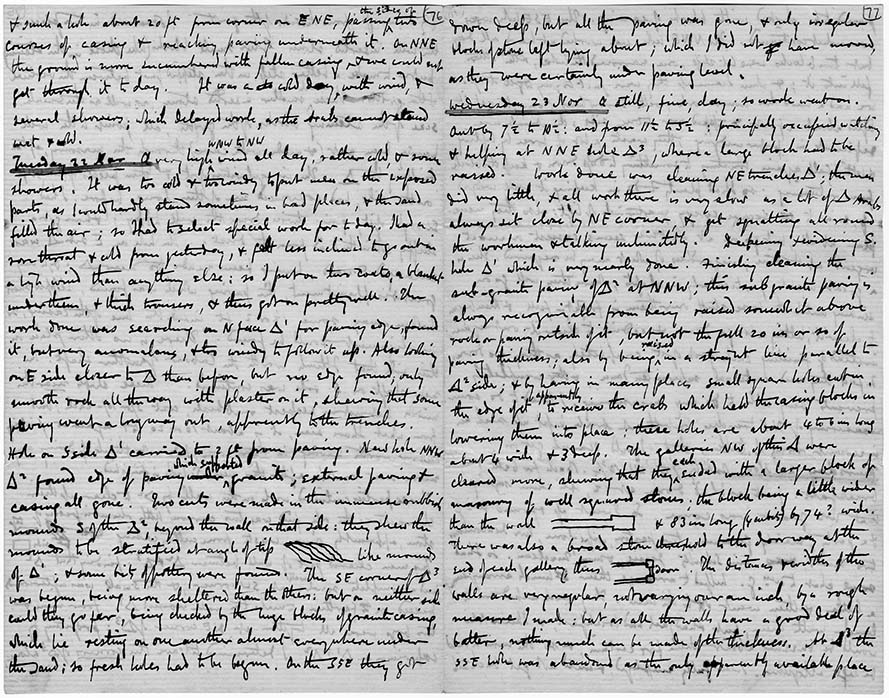 76
& such a hole about 20 ft from corner on ENE, passing the sides of two
courses of casing & reaching paving underneath it. On NNE
the ground is more encumbered with fallen casing, & we could not
get through it to day. It was a cold day, with wind, &
several showers; which delayed work, as the Arabs cannot stand
wet & cold.
Tuesday 22 Nov A very high WNW to NW wind all day, rather cold, & some
showers. It was too cold & too windy to put men on the exposed
parts, as I could hardly stand sometimes in bad places, & the sand
filled the air; so I had to select special work for to day. I had a
sore throat & cold from yesterday, & felt less inclined to go out in
a high wind than anything else: so I put on two coats, a blanket
under them, & thick trousers, & thus got on pretty well. The
work done was searching on N face Δ¹ for paving edge, found
it, but very anomalous, & too windy to follow it up. Also looking
on E side closer to Δ than before, but no edge found, only
smooth rock all the way with plaster on it, shewing that some
paving went a long way out, apparently to the trenches.
Hole on S side Δ¹ carried to ? ft from paving. New hole NNW
Δ² found edge of paving which supported granite; external paving &
casing all gone. Two cuts were made in the immense rubbish
mounds S of the Δ², beyond the wall on that side: they shew the
mounds to be stratified at angle of tip like mounds
of Δ¹; & some bits of pottery were found. The SE corner of Δ³
was begun, being more sheltered than the others: but on neither side
could they go far, being checked by the huge blocks of granite casing
which lie resting on one another almost everywhere under
the sand; so fresh holes had to be begun. On the SSE they got
77
down deep, but all the paving was gone, & only irregular
blocks of stone left lying about; which I did not have moved,
as they were certainly under paving level.
Wednesday 23 Nov A still, fine, day; so work went on.
Out by 7½ to 10½: and from 11½ to 5½: principally occupied watching
& helping at NNE hole Δ³, where a large block had to be
raised. Work done was cleaning NE trenches Δ¹; the men
did very little, & all work there is very slow as a lot of Δ Arabs
always sit close by NE corner & get squatting all round
the workmen & talking unlimitedly. Deepening & widening S.
hole Δ¹ which is very nearly done. Finishing cleaning the
sub-granite paving of Δ² at NNW; this sub granite paving is
always recognisable from being raised somewhat above
rock or paving outside of it, but not the full 20 in or so of
paving thickness; also by being raised in a straight line parallel to
Δ² side; & by having in many places small square holes cut in
the edge of it apparently to receive the crabs which held the casing blocks in
lowering them into place: these holes are about 4 to 6 in long
about 4 wide & 3 deep. The galleries NW of this Δ were
cleared more, shewing that they each ended with a larger block of
masonry of well squared stones; the block being a little wider
than the wall & 83 in long (4 cubits) by 74? wide.
There was also a broad stone threshold to the doorway at the
end of each gallery thus door. The distances & widths of the
walls are very regular, not varying over an inch, by a rough
measure I made: but as all the walls have a good deal of
batter, nothing much can be made of the thickness. At Δ³ the
SSE hole was abandoned as the only apparently available place